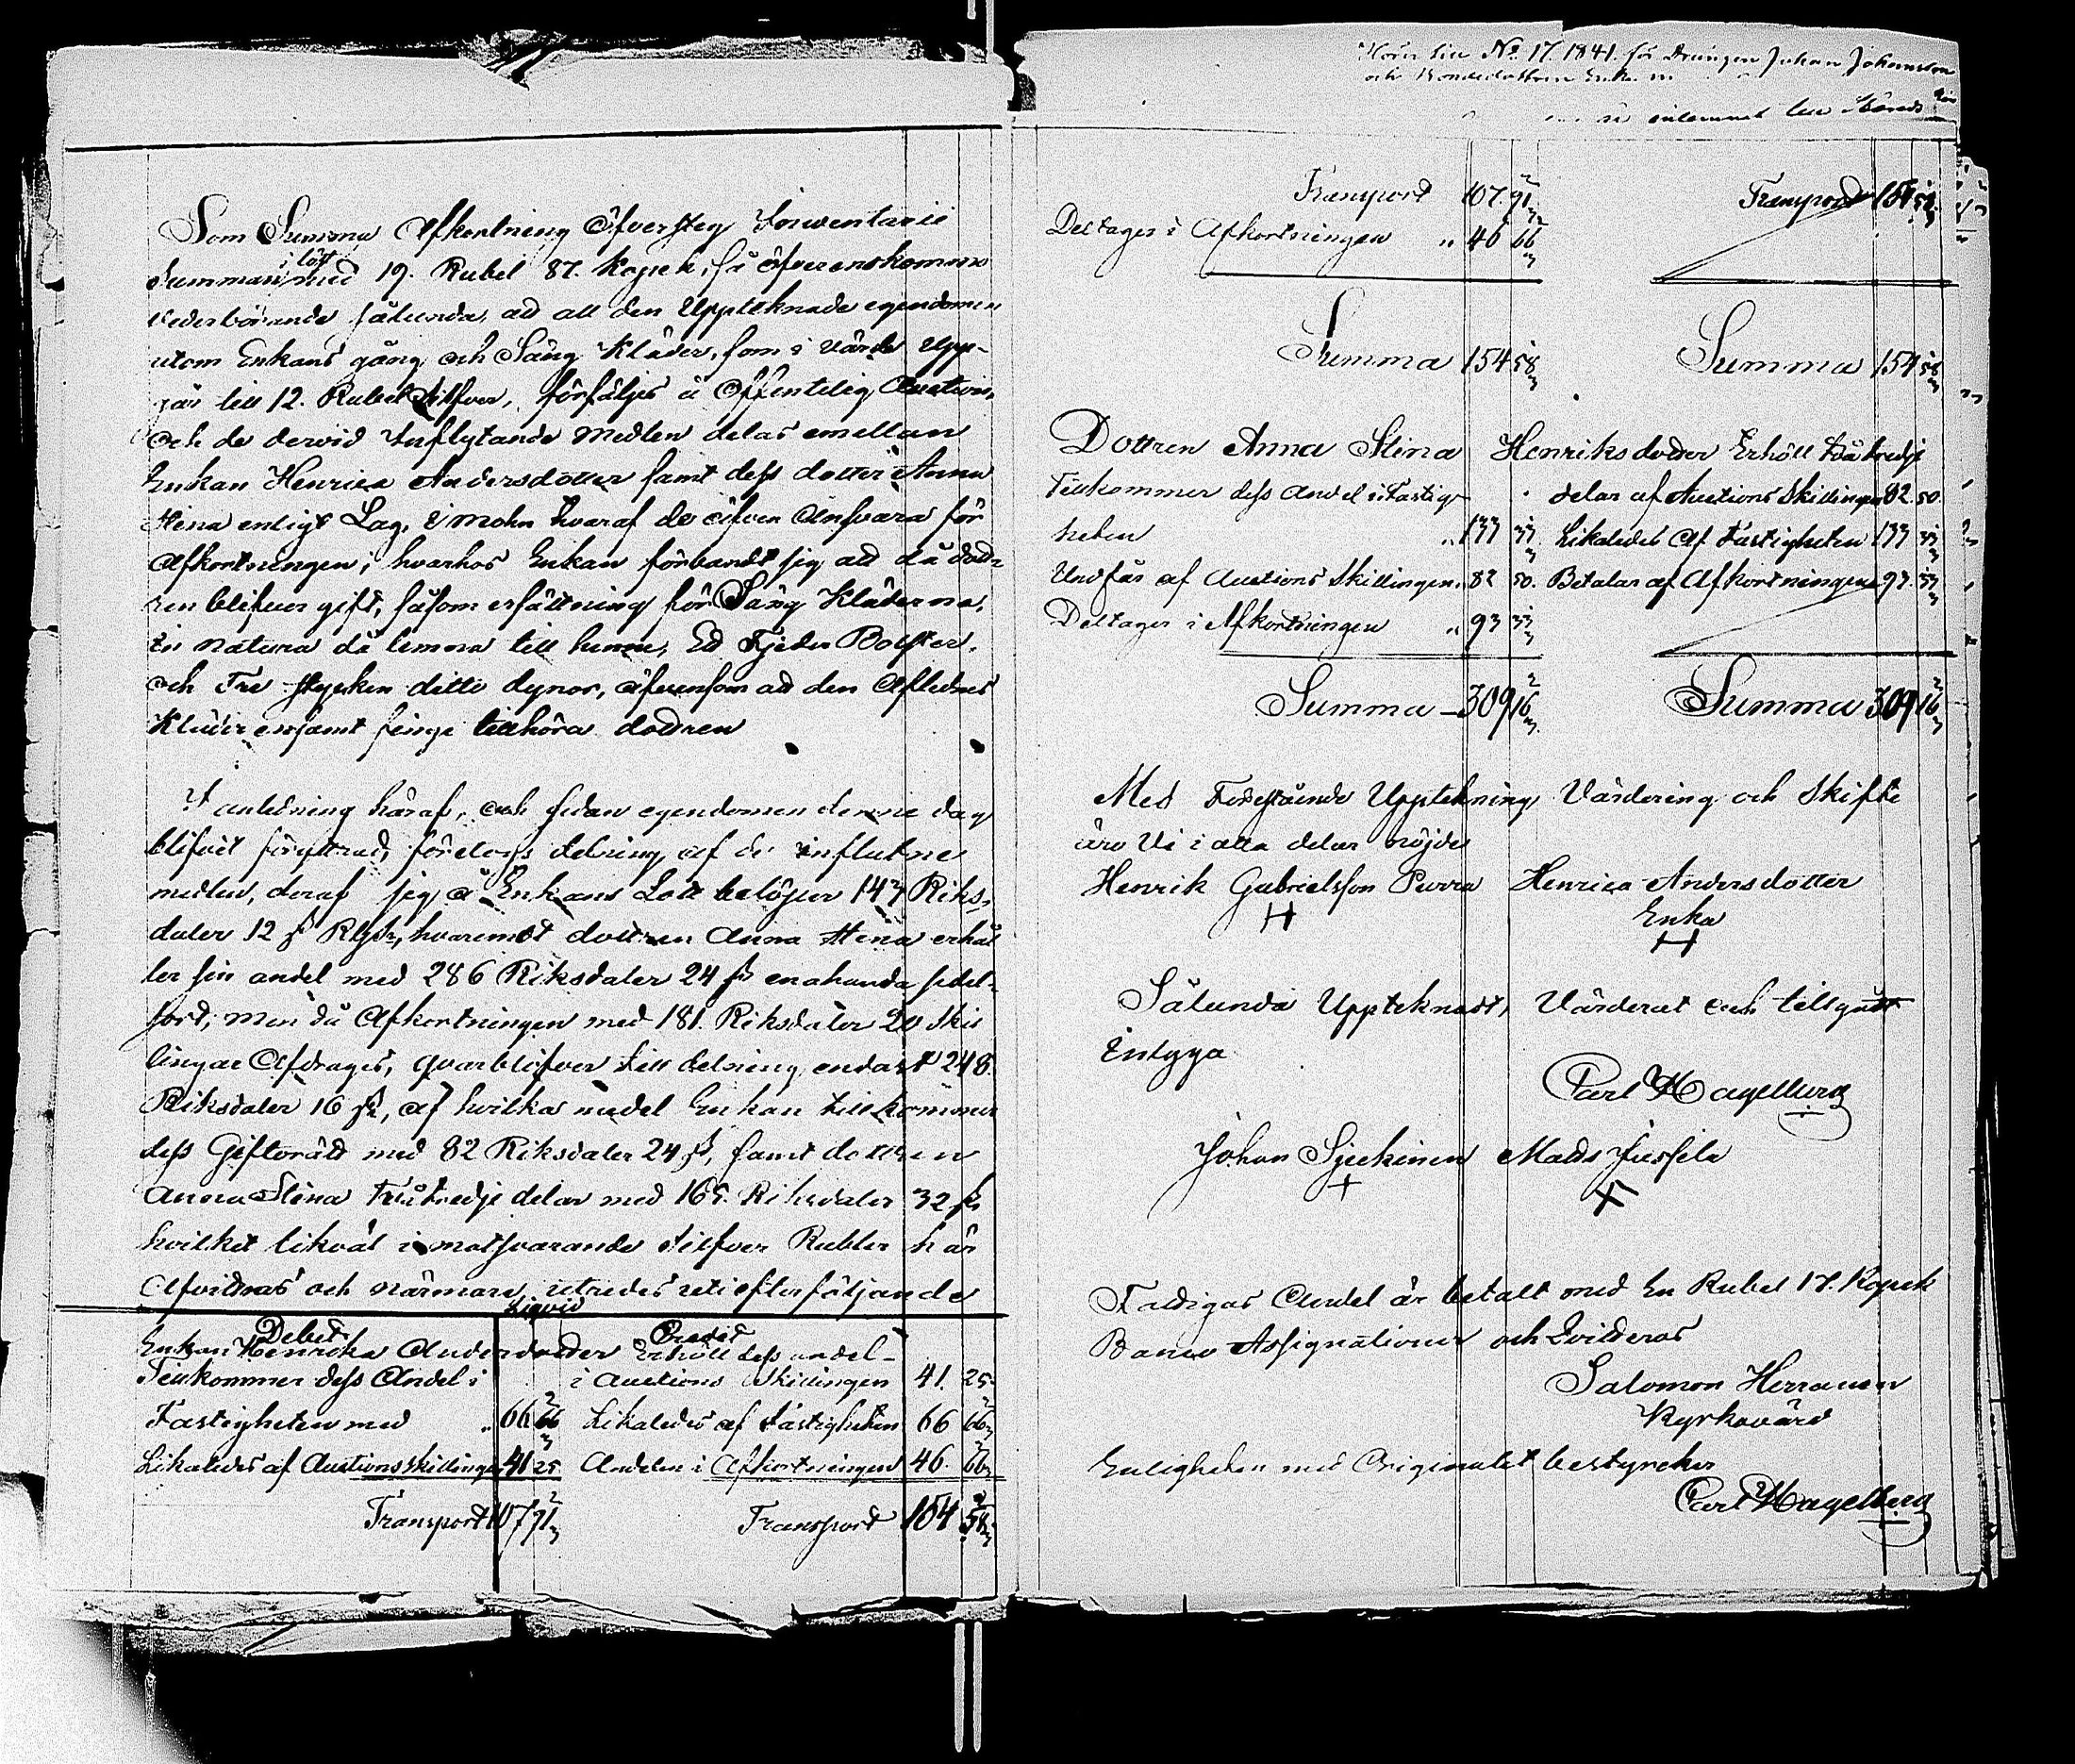 Som Summa Afkortning Öfversteg Inventarii
Summan i löst med 19. Rubel 87. Kopek, så öfverenskommo
vederbörande sålunda, ad all den Uppteknade egendomen
utom Enkans gång och Säng Kläder, som i värde upp-
går till 12. Rubel Silfver, försäljes å Offentelig Auction,
och de dervid Influtande medlen delas emellan
Enkan Henrica Andersdotter samt dess dotter Anna
Stina enligt Lag, i mohn hvaraf de äfven Ansvara för
Afkortningen; hvarhos Enkan förbandt sig ad då dodt-
ren blifver gift, såsom ersättning för Säng Kläderna,
in natura då lemna till henne, Ed Fjeder Bolster,
och Tre stycken ditto dynor, äfvensom ad den Aflednes
Kläder ensamt finge tillhöra dottren
I anledning häraf, och sedan egendomen denne dag
blifvit föryttrad, företogs delning af de influtne
medlen, deraf sig å Enkans Lott belöper 143 Riks-
daler 12 s Rgs, hvaremot dottren Anna Stina erhål-
ler sin andel med 286 Riksdaler 24 s enahanda sedel-
sort; men då Afkortningen med 181. Riksdaler 20 Skil
lingar Afdrages, qvarblifver till delning endast 248.
Riksdaler 16 s, af hvilka medel Enkan tillkommer
dess Giftorätt med 82 Riksdaler 24 s, samt dottren
Anna Stina Två tredje delar med 165. Riksdaler 32 s
hvilket likväl i motsvarande Silfver Rubler här
Afvitras och närmare utredes uti efterföljande
Debet Credit
Enkan Henrika Andersdotter Erhöll dess andel
Tillkommer dess Andel i i Auctions Skillingen 41. 25.
Fastigheten med " 66 66 2/3 Likaledes af Fastigheten 66 66 2/3
Likaledes af Auctionsskillingen 41 25 Andelen i Afkortningen 46. 66 2/3
Transport 107 91 2/3 Transport 154 58 2/3
N:o 17. 1841. för Drängen Johan Johansson
och Bondedottren
inlemnat
Transport 107. 91 2/3 Transport 154 58
Deltages i Afkortningen " 46 66 2/3
Summa 154 58 Summa 154 58
Dottren Anna Stina Henriksdotter Erhöll två tredje
Tillkommer dess Andel i Fastig- delar af Auctions Skillingen 82. 50.
heten " 133 33 Likaledes Af Fastigheten 133 33
Undfår af Auctions Skillingen " 82 50. Betalar af Afkortningen 93. 33
Deltager i Afkortningen " 93 33
Summa 309 16 2/3 Summa 309 16 2/3
Med Förestående Uppteckning, Värdering och Skifte
äro Vi i alla delar nöjde
Henrik Gabrielsson Purra Henrica Andersdotter
H Enka
H
Sålunda Uppteknadt, Värderat och tillgått
Intyga
Carl Hagelberg
Johan Sjeekinen Matts
+ X
Fattigas Andel är betalt med En Rubel 17. Kopek
Banco Assignationer och Qvitteras
Salomon Herranen
Kyrkovärd
Enligheten med Originalet bestyrcker
Carl Hagelberg